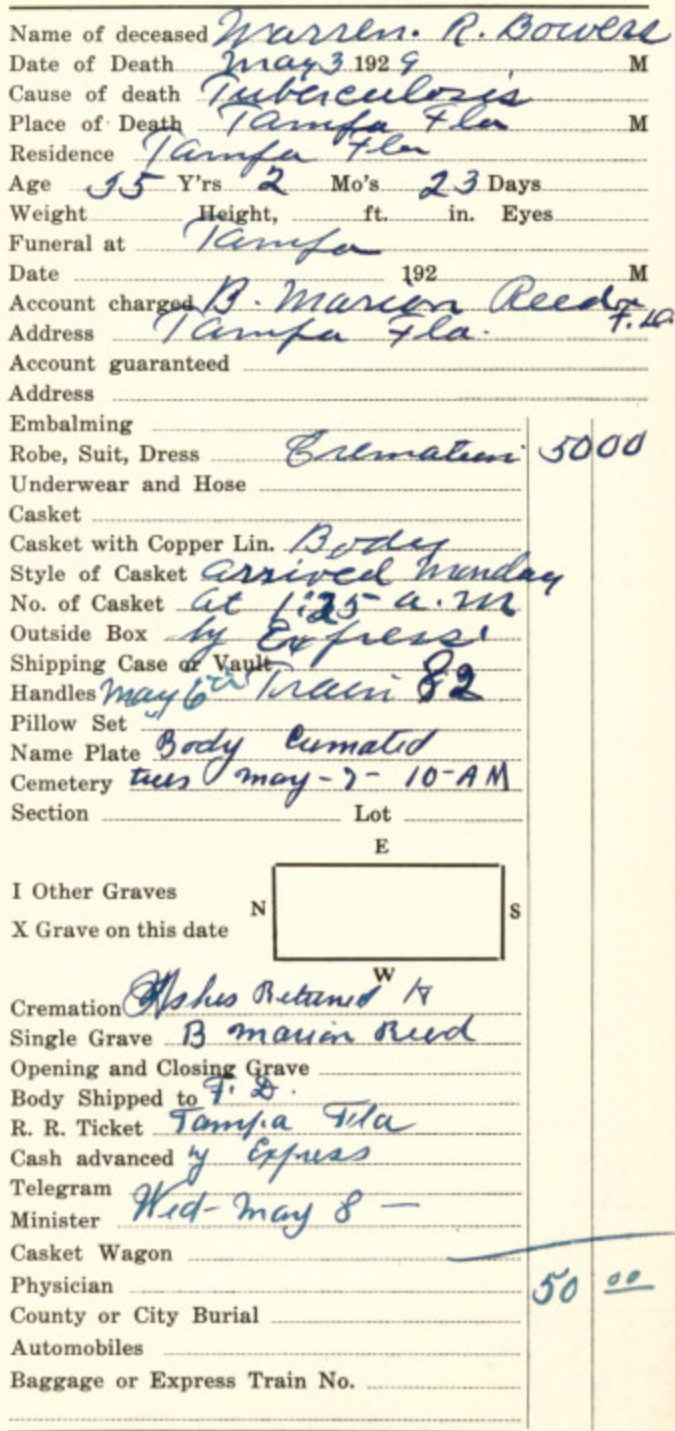 Name of deceased Warren. R. Bowers
Date of Death May 3 1929 M
Cause of death Tuberculosis
Place of Death Tampa Fla M
Residence Tampa Fla
Age 35 Y'rs 2 Mo's 23 Days
Weight Height, ft. in. Eyes
Funeral at Tampa
Date 192 M
Account charged B. Marion Reed F.D.
Address Tampa Fla.
Account guaranteed
Address
Embalming
Robe, Suit, Dress Cremation 50 00
Underwear and Hose
Casket
Casket with Copper Lin. Body
Style of Casket arrived Monday
No. of Casket at 1:25 a.m
Outside Box by Express
Shipping Case or Vault
Handles May 6th Train 82
Pillow Set
Name Plate Body Cumated
Cemetery tues may-7-10-AM
Section Lot
E
I Other Graves
N S
X Grave on this date
W
Cremation Ashes Returned to
Single Grave B Marion Reed
Opening and Closing Grave
Body Shipped to F. D.
R. R. Ticket Tampa Fla
Cash advanced by Express
Telegram
Minister Wed- May 8 —
Casket Wagon
Physician 50 00
County or City Burial
Automobiles
Baggage or Express Train No.